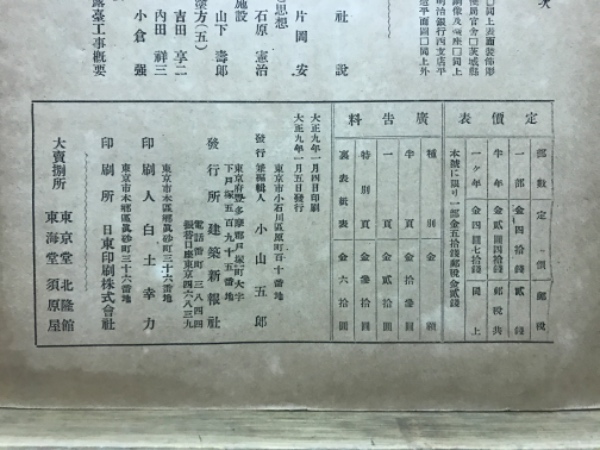 次
□同上表面裝飾彫
便局官舍□茨城縣
銅像及臺座□同上
明治銀行四支店平
造平面圖□同上外
社說
片岡安
思想
石原憲治
施設
山下壽郎
塗方(五)
吉田享二
內田祥三
小倉强
露臺工事槪要
定價表
部數 定價 郵稅
一部 金四拾錢 貳錢
半年 金貳圓四拾錢 郵稅共
一ケ年 金四圓七拾錢 同上
本號に限り一部金五拾錢郵稅金貳錢
廣告料
種別 金額
半頁 金拾參圓
一頁 金貳拾圓
特別頁 金參拾圓
裏表紙表 金六拾圓
大正九年一月四日印刷
大正九年一月五日發行
東京市小石川區原町百十番地
發行兼編輯人 小山五郎
東京府豐多摩郡戶塚町大字
下戶塚五百九十五番地
發行所 建築新報社
電話番町三八四四
振替口座東京四六八三九
東京市本鄕區眞砂町三十六番地
印刷人 白土幸力
東京市本鄕區眞砂町三十六番地
印刷所 日東印刷株式會社
大賣捌所 東京堂 北隆館
東海堂 須原屋